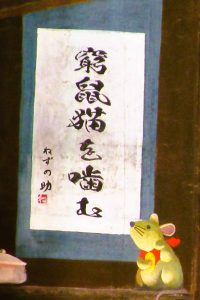 窮鼠猫を噛む
ねずの助